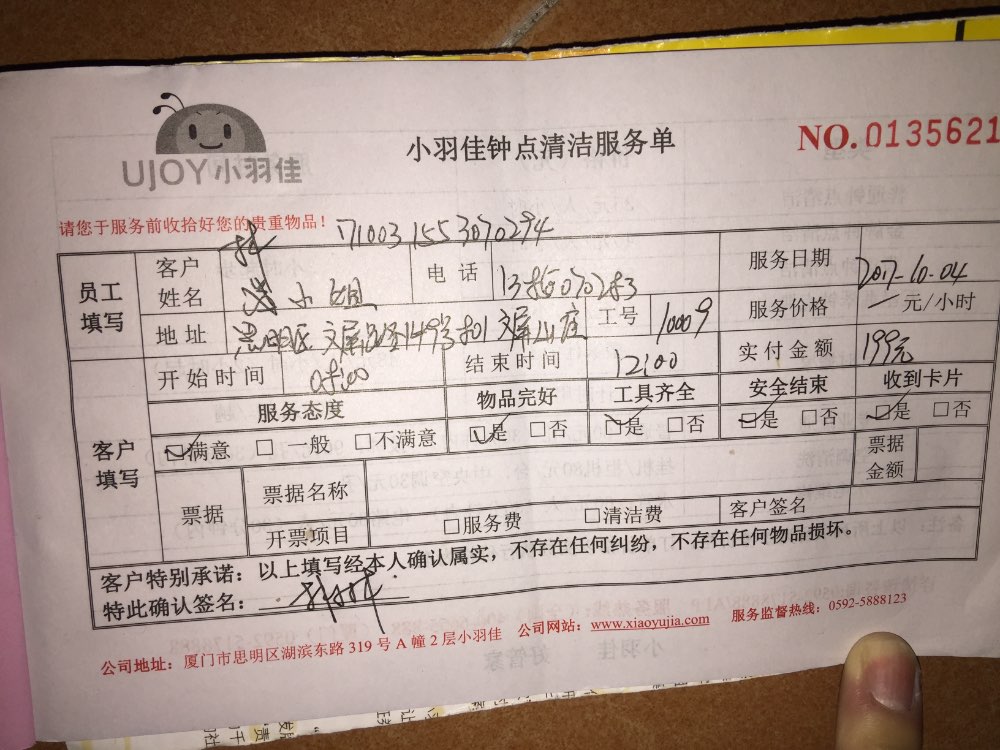 UJOY小羽佳
小羽佳钟点清洁服务单
NO. 0135621
请您于服务前收拾好您的贵重物品！
员工填写
客户姓名 小姐
电话
服务日期 2017-10-04
地址 思明区
工号 10009
服务价格 元/小时
开始时间
结束时间 12:00
实付金额 199元
客户填写
服务态度 物品完好 工具齐全 安全结束 收到卡片
满意 一般 不满意 是 否 是 否 是 否 是 否
票据
票据名称
票据金额
开票项目 服务费 清洁费 客户签名
客户特别承诺：以上填写经本人确认属实，不存在任何纠纷，不存在任何物品损坏。
特此确认签名：
公司地址：厦门市思明区湖滨东路 319 号 A 幢 2 层小羽佳 公司网站：www.xiaoyujia.com 服务监督热线：0592-5888123